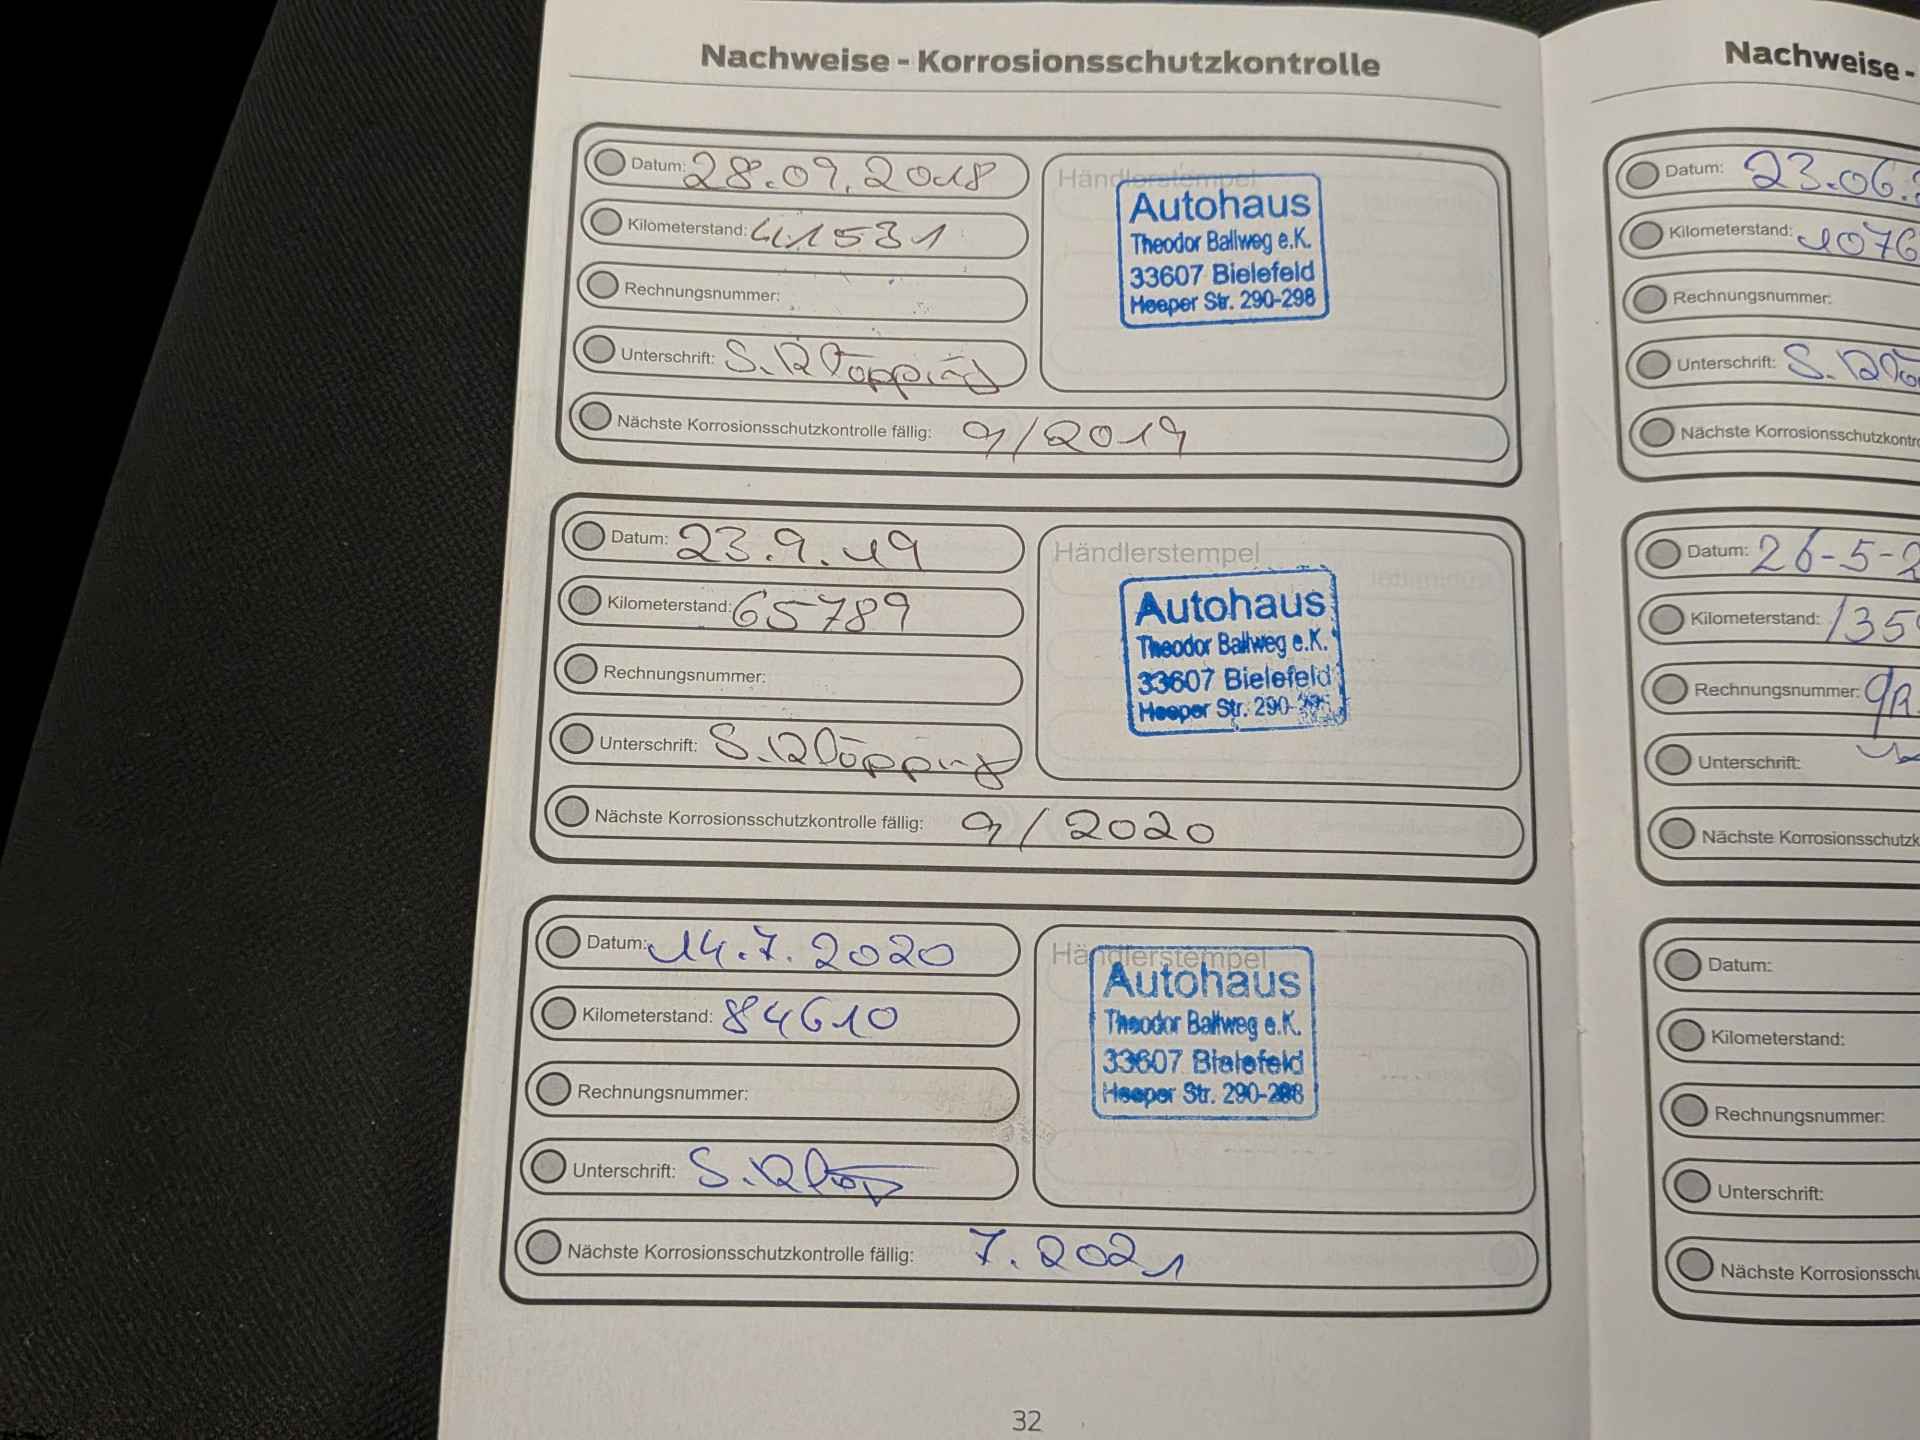 Nachweise - Korrosionsschutzkontrolle
Datum: 28.09.2018
Kilometerstand: 41531
Rechnungsnummer:
Unterschrift: S. Klöpping
Nächste Korrosionsschutzkontrolle fällig: 9/2019
Händlerstempel
Autohaus
Theodor Ballweg e.K.
33607 Bielefeld
Heeper Str. 290-298
Datum: 23.9.19
Kilometerstand: 65789
Rechnungsnummer:
Unterschrift: S. Klöpping
Nächste Korrosionsschutzkontrolle fällig: 9/2020
Händlerstempel
Autohaus
Theodor Ballweg e.K.
33607 Bielefeld
Heeper Str. 290-298
Datum: 14.7.2020
Kilometerstand: 84610
Rechnungsnummer:
Unterschrift: S. Klöp
Nächste Korrosionsschutzkontrolle fällig: 7.2021
Händlerstempel
Autohaus
Theodor Ballweg e.K.
33607 Bielefeld
Heeper Str. 290-298
32
Nachweise -
Datum: 23.06.
Kilometerstand: 1076
Rechnungsnummer:
Unterschrift: S. Klö
Nächste Korrosionsschutzkontro
Datum: 26-5-2
Kilometerstand: 135
Rechnungsnummer:
Unterschrift:
Nächste Korrosionsschutzk
Datum:
Kilometerstand:
Rechnungsnummer:
Unterschrift:
Nächste Korrosionsschu